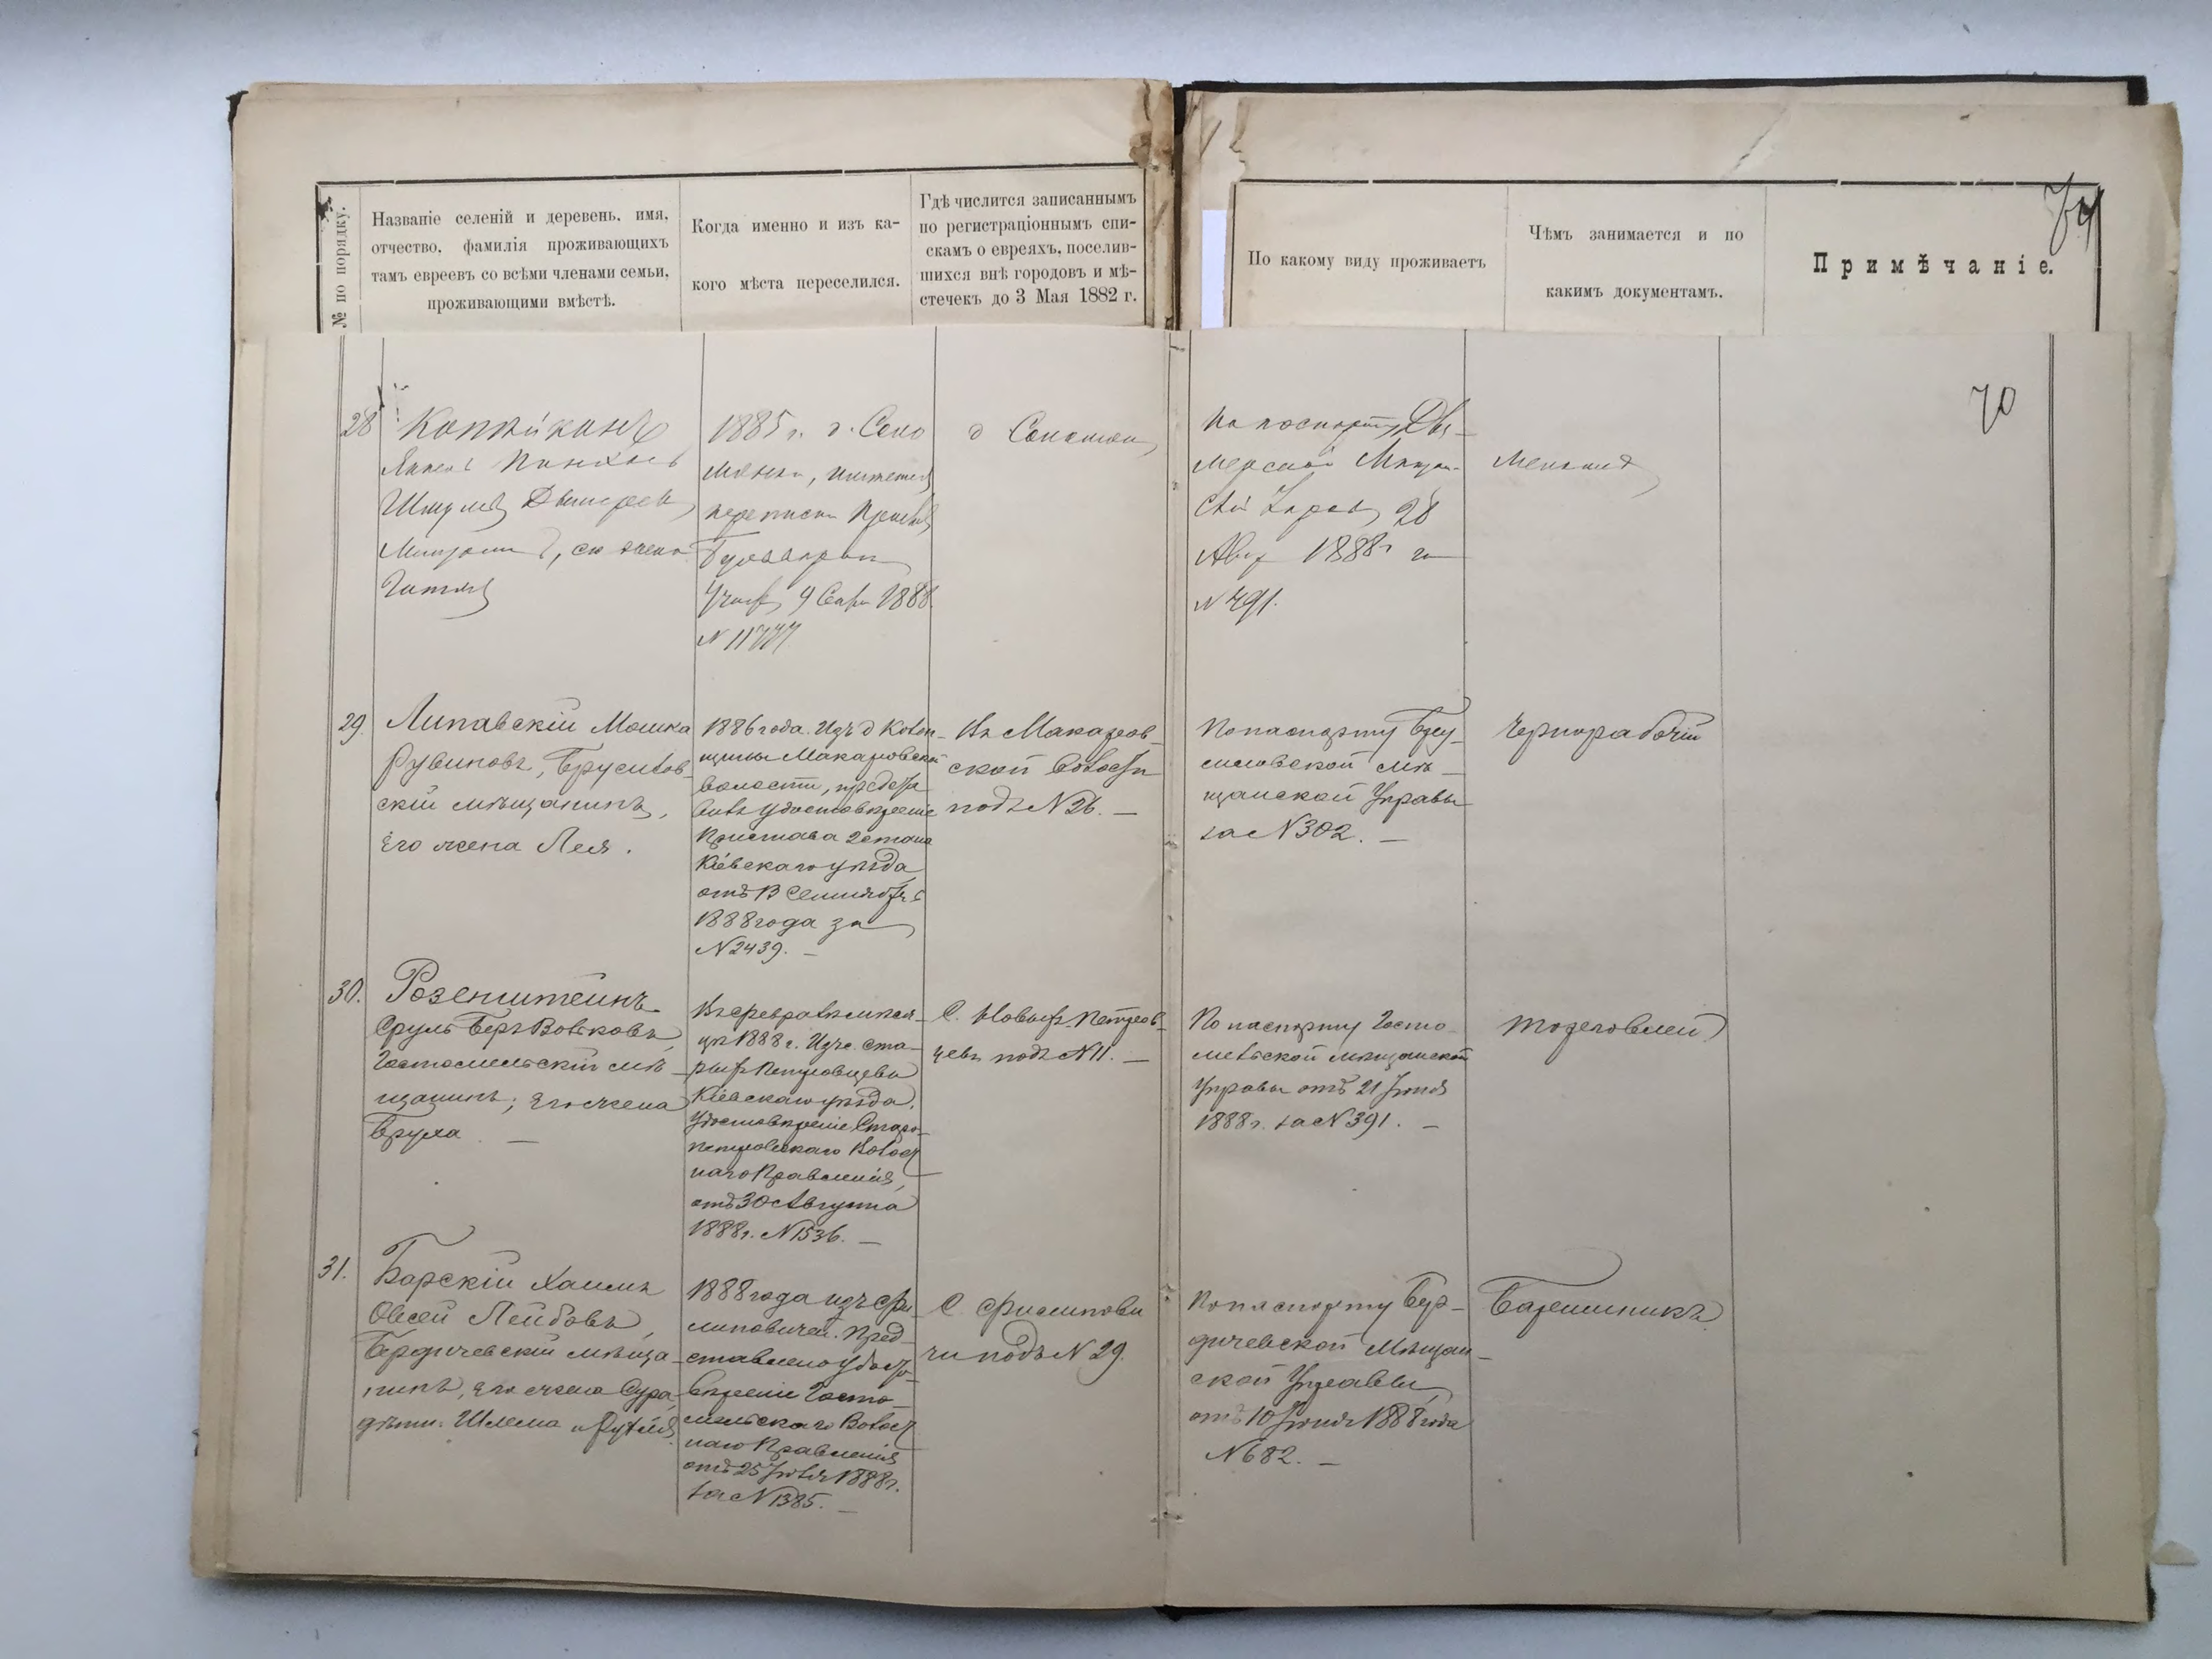 № по порядку.
Названіе селеній и деревень, имя,
отчество, фамилія проживающихъ
тамъ евреевъ со всѣми членами семьи,
проживающими вмѣстѣ.
Когда именно и изъ ка-
кого мѣста переселился.
Гдѣ числится записаннымъ
по регистраціоннымъ спи-
скамъ о евреяхъ, поселив-
шихся внѣ городовъ и мѣ-
стечекъ до 3 Мая 1882 г.
По какому виду проживаетъ
Чѣмъ занимается и по
какимъ документамъ.
Примѣчаніе.
70
28
Шмулев
его жена
1885 г. д.
переписки
1888
N 11777
д
По паспорту
28
Авг 1888 г за
N 491.
29.
Липавскій Мошка
Рувиновъ, Брусилов
скій мѣщанинъ,
Его жена Лея.
1886 года. Изъ д Колон-
щины Макаровской
волости, предста
вивъ удостовѣреніе
Пристава 2 стана
Кіевскаго уѣзда
отъ 13 Сентября
1888 года за
N 2439. —
Въ Макаров-
ской волости
подъ N 26. —
По паспорту Бру-
силовской мѣ-
щанской Управы
за N 302. —
Чернорабочій
30.
Розенштейнъ
Сруль Беръ Вовковъ,
Гостомельскій мѣ-
щанинъ; его жена
Бруха —
Въ февралѣ мѣся-
цѣ 1888 г. Изъ с. Ста-
рыхъ Петровцевъ
Кіевскаго уѣзда,
Удостовѣреніе Старо-
петровскаго Волост
наго Правленія,
отъ 30 Августа
1888 г. N 1536. —
С. Новыхъ Петров-
цевъ подъ N 11. —
По паспорту Госто-
мельской мѣщанской
Управы отъ 21 Іюня
1888 г. за N 391. —
торговлей
31.
Барскій Хаимъ
Овсей Лейбовъ,
Бердичевскій мѣща-
нинъ, его жена Сура,
дѣти: Шлема и
1888 года изъ Фи
липовичей. Пред-
ставлено удосто-
вѣреніе Госто-
мельскаго Волост
наго Правленія
отъ 25 Іюля 1888 г.
за N 1385. —
С. Филипови
чи подъ N 29.
По паспорту Бер-
дичевской Мѣщан-
ской Управы,
отъ 10 Іюня 1888 года
N 682. —
Барышникъ